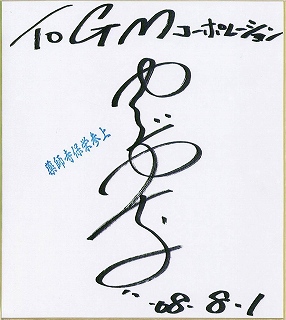 To GMコーポレーション
薬師寺保栄参上
'08-8-1